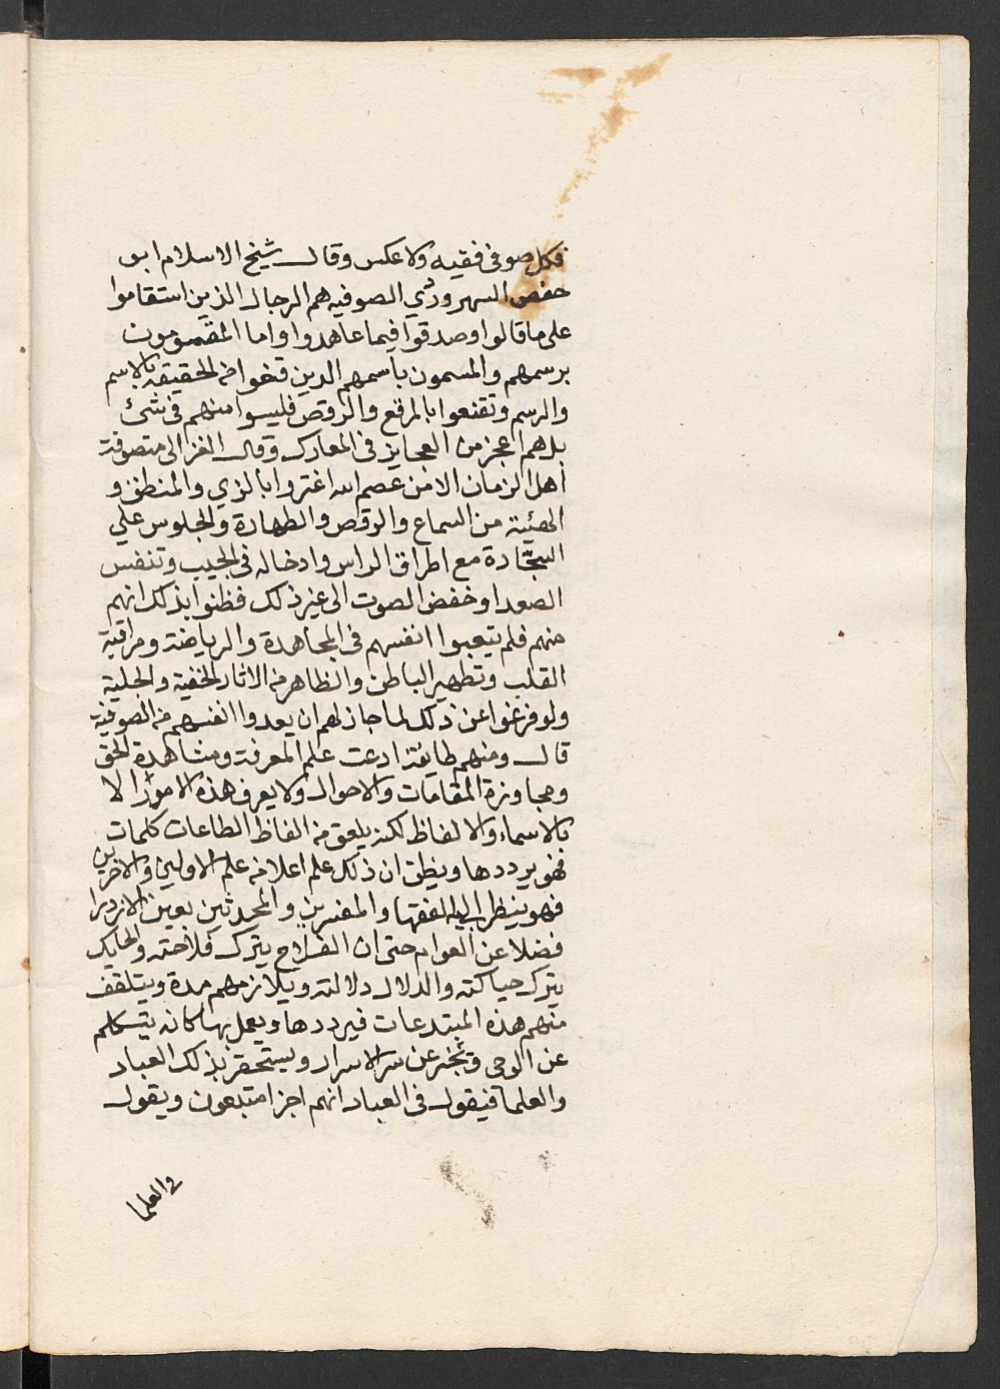 فكل صوفى فقيه ولا عكس وقال شيخ الاسلام ابو
حفص السهروردي الصوفيه هم الرجال الذين استقاموا
على ما قالوا وصدقوا فيما عاهدوا واما
برسمهم والمسمون باسمهم الذين قنعوا من الحقيقه بالاسم
والرسم وتقنعوا بالمرقع والرقص فليسوا منهم فى شئ
بل هم اعجز من العجايز فى المعارك وقال الغزالى متصوفة
اهل الزمان الا من عصم الله اغتروا بالزي والمنطق و
الهيئة من السماع والرقص والطهارة والجلوس علي
السجادة مع اطراق الراس وادخاله فى الجيب وتنفس
الصعدا وخفض الصوت الى غير ذلك فظنوا بذلك انهم
منهم فلم يتعبوا انفسهم فى المجاهدة والرياضة ومراقبة
القلب وتطهير الباطن والظاهر من الاثار الخفية والجلية
ولو فرغوا عن ذلك لما جاز لهم ان يعدوا انفسهم من الصوفية
قال ومنهم طايفة ادعت علم المعرفة ومشاهدة الحق
ومجاوزة المقامات والاحوال ولا يعرف هذه الامور الا
بالاسماء والالفاظ لكنه من الفاظ الطاعات كلمات
فهو يرددها ويظن ان ذلك علم اعلا من علم الاولين والاخرين
فهو ينظر الى الفقها والمفسرين والمحدثين بعين الازدرا
فضلا عن العوام حتى ان الفلاح يترك فلاحته والحايك
يترك حياكته والدلال دلالته ويلازمهم مدة ويتلقف
منهم هذه المبتدعات فيرددها ويعمل بها كانه يتكلم
عن الوحى وتخبر عن سر الاسرار ويستحقر بذلك العباد
والعلما فيقول فى العباد انهم اجرا متبعون ويقول
فى العلما